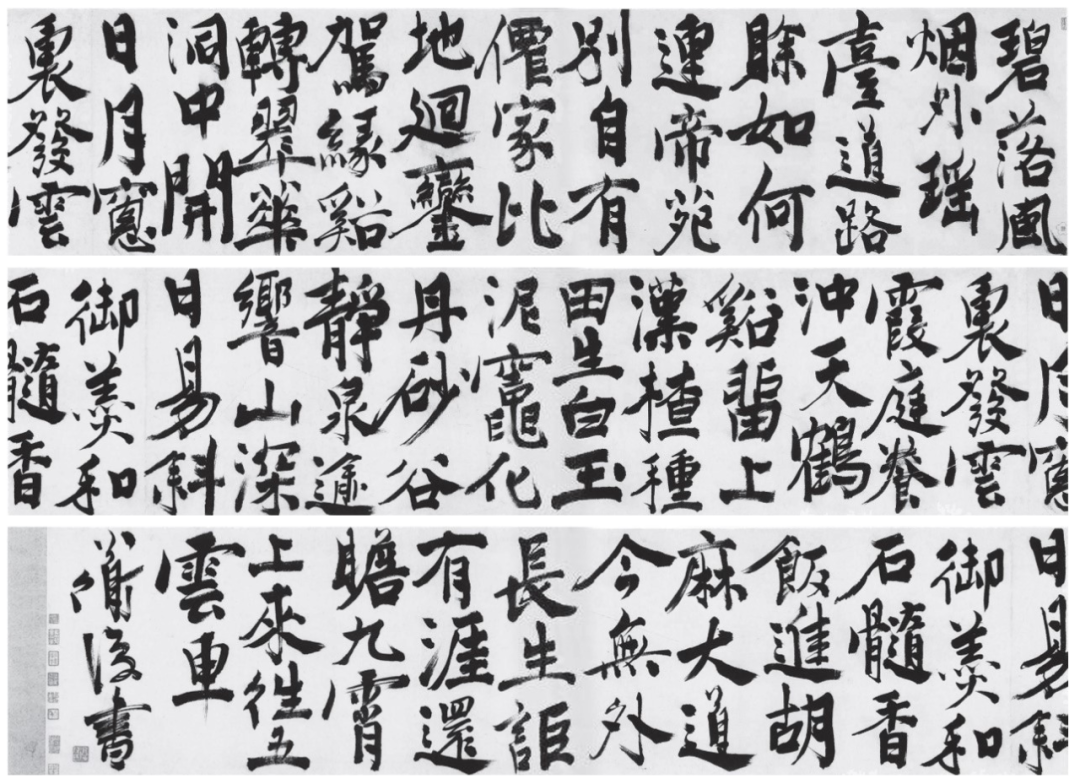 碧落風
烟外瑤
臺道路
賒如何
連帝苑
別自有
僊家比
地迴鑾
駕緣谿
轉翠華
洞中開
日月窻
裏發雲
日月窻
裏發雲
霞庭養
沖天鶴
谿畱上
漢楂種
田生白玉
泥竈化
丹砂谷
靜泉逾
響山深
日易斜
御羮和
石髓香
日易斜
御羮和
石髓香
飯進胡
麻大道
今無外
長生詎
有涯還
瞻九霄
上來往五
雲車
書